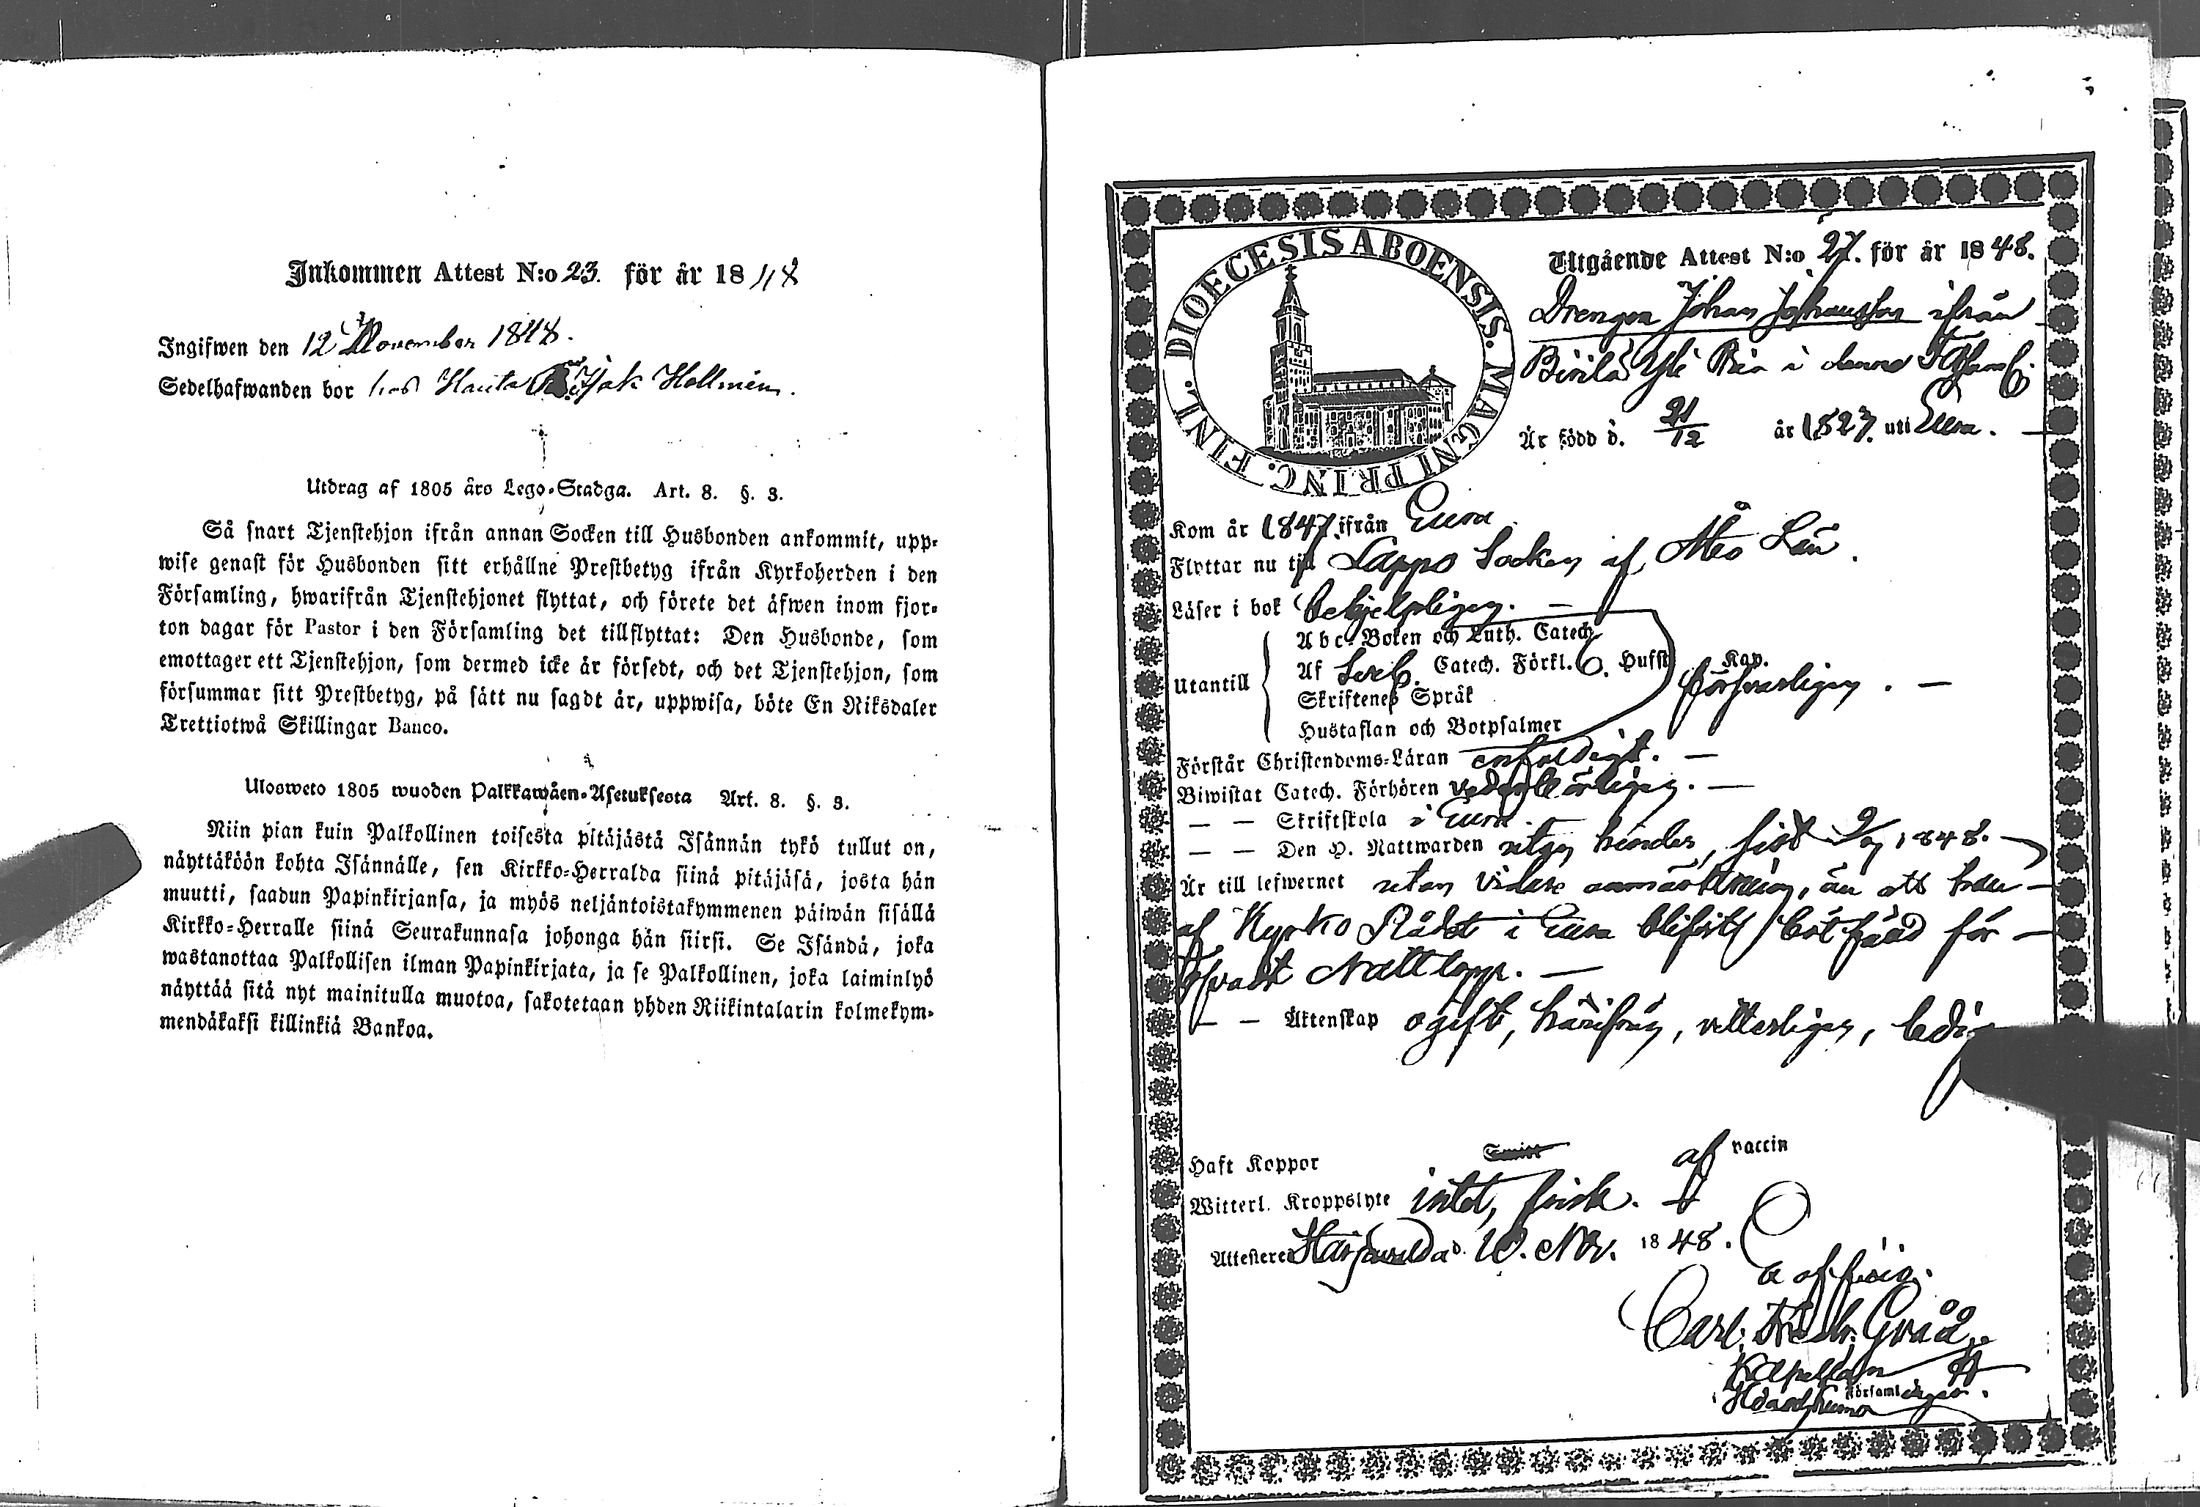 Inkommen Attest N:o 23. för år 1848
Ingifwen den 12 November 1848.
Sedelhafwanden bor hos Jak Hellmén.
Utdrag af 1805 års Lego-Stadga. Art. 8. §. 3.
Så snart Tjenstehjon ifrån annan Socken till Husbonden ankommit, upp-
wise genast för Husbonden sitt erhållne Prestbetyg ifrån Kyrkoherden i den
Församling, hwarifrån Tjenstehjonet flyttat, och förete det äfwen inom fjor-
ton dagar för Pastor i den Församling det tillflyttat: Den Husbonde, som
emottager ett Tjenstehjon, som dermed icke är försedt, och det Tjenstehjon, som
försummar sitt Prestbetyg, på sätt nu sagdt är, uppwisa, böte En Riksdaler
Trettiotwå Skillingar Banco.
Ulosweto 1805 wuoden Palkkawäen-Asetuksesta Art. 8. §. 3.
Niin pian kuin Palkollinen toisesta pitäjästä Isännän tykö tullut on,
näyttäköön kohta Isännälle, sen Kirkko-Herralda siinä pitäjäsä, josta hän
muutti, saadun Papinkirjansa, ja myös neljäntoistakymmenen päiwän sisällä
Kirkko-Herralle siinä Seurakunnasa johonga hän siirsi. Se Isändä, joka
wastanottaa Palkollisen ilman Papinkirjata, ja se Palkollinen, joka laiminlyö
näyttää sitä nyt mainitulla muotoa, sakotetaan yhden Riikintalarin kolmekym-
mendäkaksi killinkiä Bankoa.
DIOECESIS ABOENSIS. MAGNI PRINC. FINL.
Utgående Attest N:o 27. för år 1848.
Drengen Johan Johansson ifrån
Yli i denne
Är född d. 21/12 år 1827 uti Eura.
Kom år 1847 ifrån Eura.
Flyttar nu till Lappo Socken af Åbo Län.
Läser i bok behjelpligen.
Abc-Boken och Luth. Catech.
Utantill Af Catech. Förkl. Hufst. Kap. försvarligen.
Skriftenes Språk
Hustaflan och Botpsalmer
Förstår Christendoms-Läran enfaldigt.
Biwistat Catech. Förhören vederbörligen.
— — Skriftskola i Eura.
— — Den H. Nattwarden utan hinder, sist 1848.
Är till lefwernet utan vidare anmärkning, än att han
af Kyrko Rådet i Eura blifvit bötfäld för
öfvadt Nattlopp.
— — Äktenskap ogift, härifrån, vitterligen, ledig
Haft Koppor af vaccin
Witterl. Kroppslyte intet, frisk.
Attesteres Harjavalda d. 10. Nov. 1848.
Ex officio.
Carl. Fredr. Gråå.
Kapellan
Församlingar.